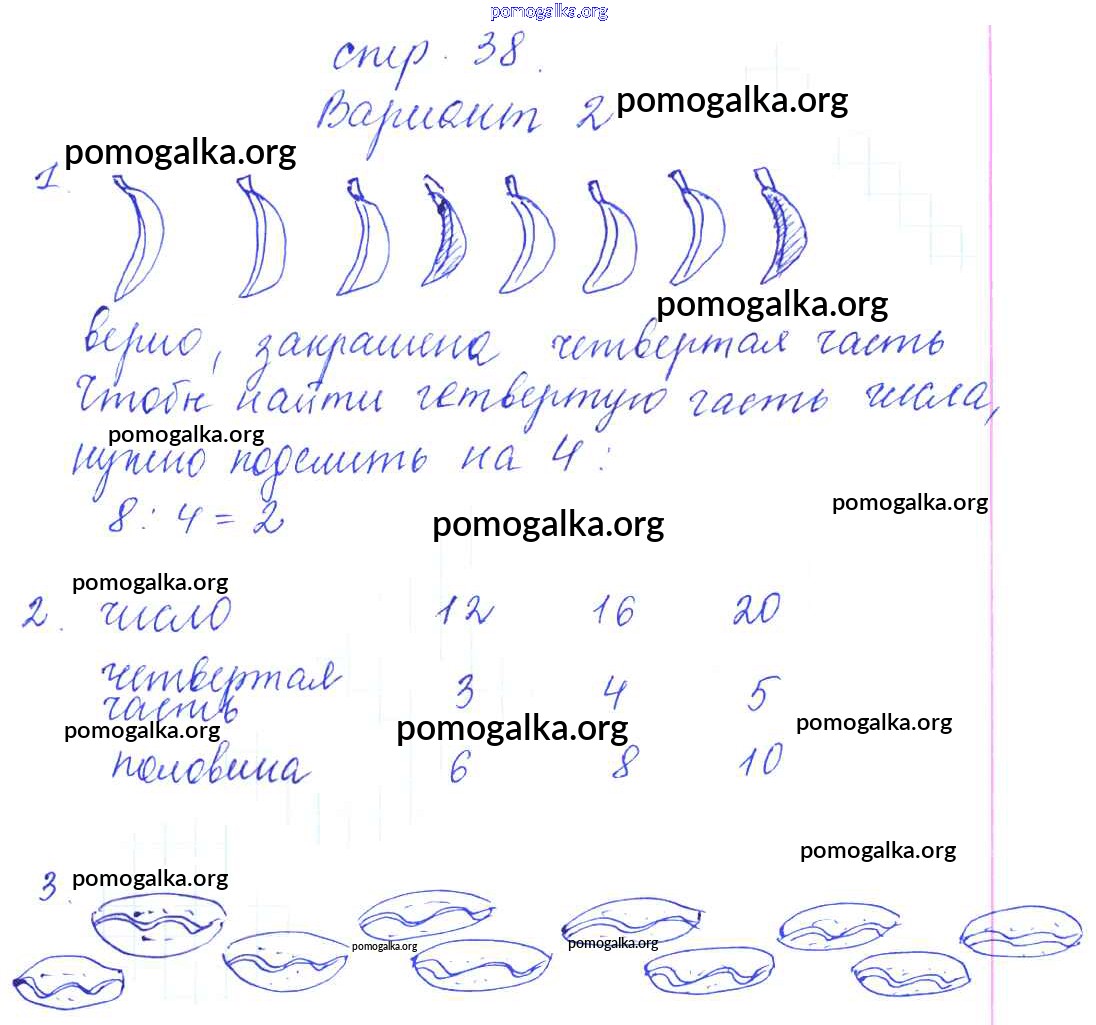 pomogalka.org
стр. 38.
Вариант 2 pomogalka.org
pomogalka.org
1.
pomogalka.org
верно, закрашена четвертая часть
Чтобы найти четвертую часть числа,
pomogalka.org
нужно поделить на 4:
pomogalka.org
8 : 4 = 2
pomogalka.org
pomogalka.org
2. число 12 16 20
четвертая
часть 3 4 5
pomogalka.org pomogalka.org pomogalka.org
половина 6 8 10
pomogalka.org
3. pomogalka.org
pomogalka.org pomogalka.org